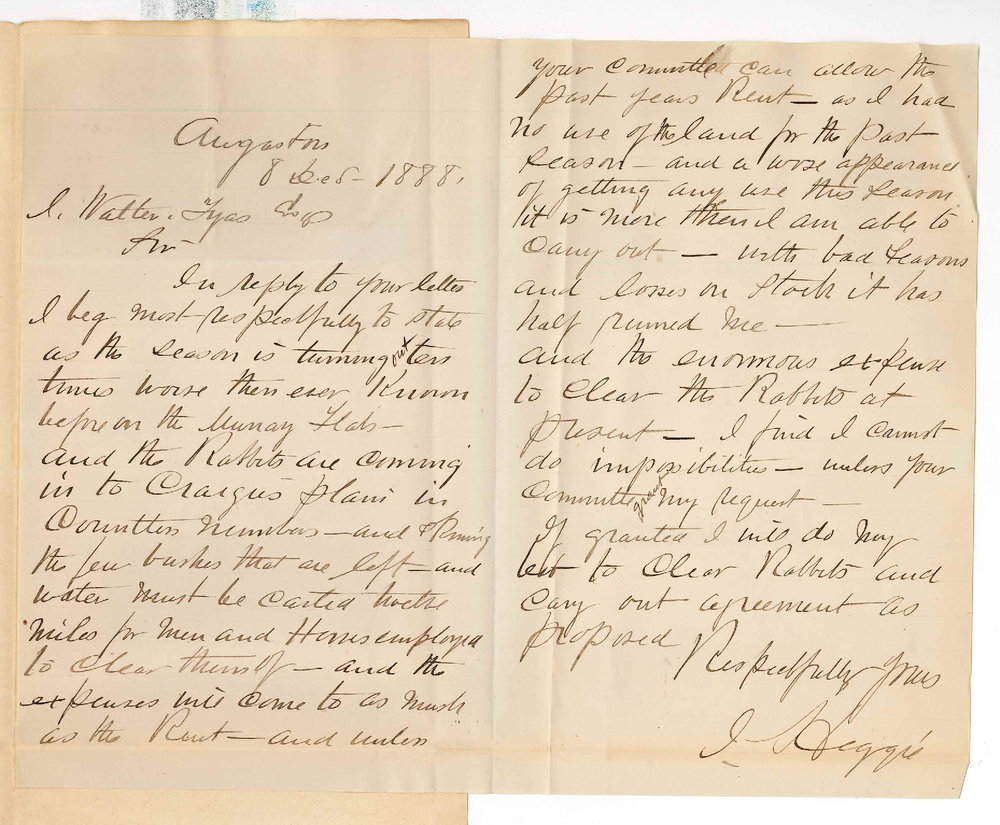 Angaston
8 Dec 1888.
J. Walter. Tyas Esq
Sir
In reply to your letter
I beg most respectfully to state
as the season is turning out ten
times worse then ever known
before on the Murray Flats –
and the Rabbits are coming
in to Craigies plain in
Countless numbers – and
the few bushes that are left – and
water must be carted twelve
miles for men and Horses employed
to clear them of – and the
expenses will come to as much
as the Rent – and unless
your Committee can allow the
past years Rent – as I had
no use of the land for the past
season – and a worse appearance
of getting any use this season
it is more then I am able to
carry out – with bad seasons
and losses on Stock it has
half ruined me –
and the enormous expense
to Clear the Rabbits at
present – I find I cannot
do impossibilities – unless your
Committee grant my request –
If granted I will do my
best to Clear Rabbits and
cary out agreement as
proposed
Respectfully yours
J Heggie